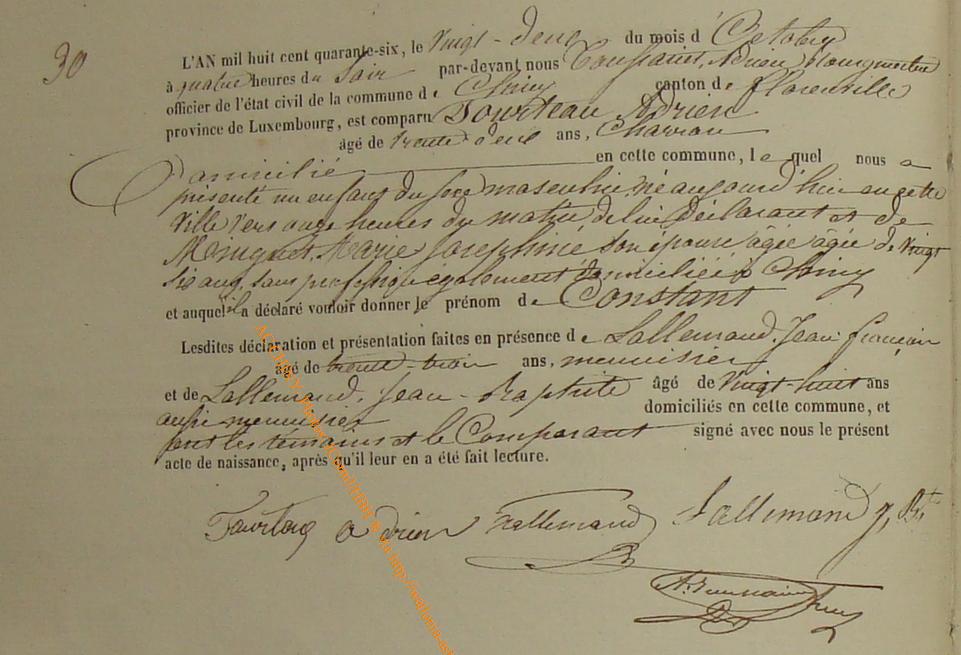 30
L'AN mil huit cent quarante-six, le vingt-deux du mois d'Octobre
à quatre heures du soir par-devant nous Toussaint, Adrien Bourgmestre
officier de l'état civil de la commune de Chiny canton de florenville
province de Luxembourg, est comparu Tourteau Adrien
âgé de trente deux ans, Charron
Domicilié en cette commune, lequel nous a
présenté un enfant du sexe masculin né aujourd'hui en cette
ville vers onze heures du matin de lui déclarant et de
Marie Josephine son épouse âgée âgée de vingt
six ans, sans profession également domiciliée à Chiny
et auquel il a déclaré vouloir donner le prénom de Constant
Lesdites déclaration et présentation faites en présence de Lallemand, Jean françois
âgé de trente-trois ans, menuisier
et de Lallemand, Jean-Baptiste âgé de vingt-huit ans
aussi menuisier domiciliés en cette commune, et
sont les temoins et le Comparant signé avec nous le présent
acte de naissance, après qu'il leur en a été fait lecture.
adrien Lallemand Lallemand J, Bte
A. Toussaint